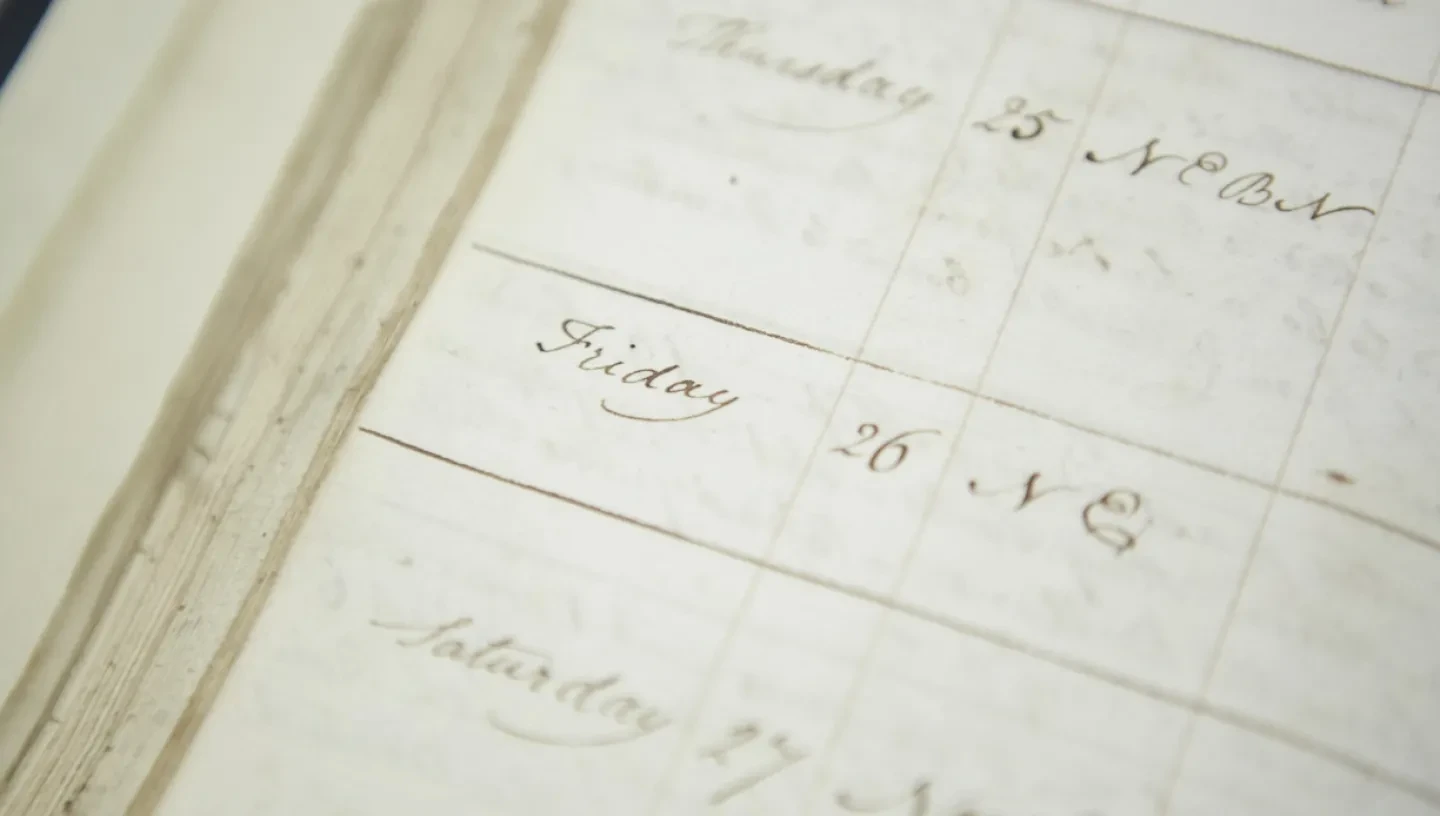 Thursday 25 N E B N
Friday 26 N E
Saturday 27 N